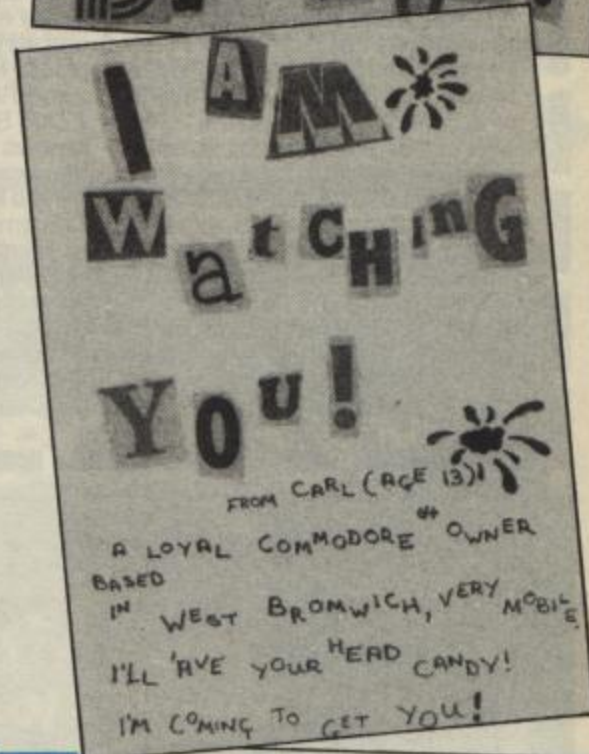 I AM
WatCHinG
YOU!
FROM CARL (AGE 13)!
A LOYAL COMMODORE 64 OWNER
BASED
IN WEST BROMWICH, VERY MOBILE.
I'LL 'AVE YOUR HEAD CANDY!
I'M COMING TO GET YOU!